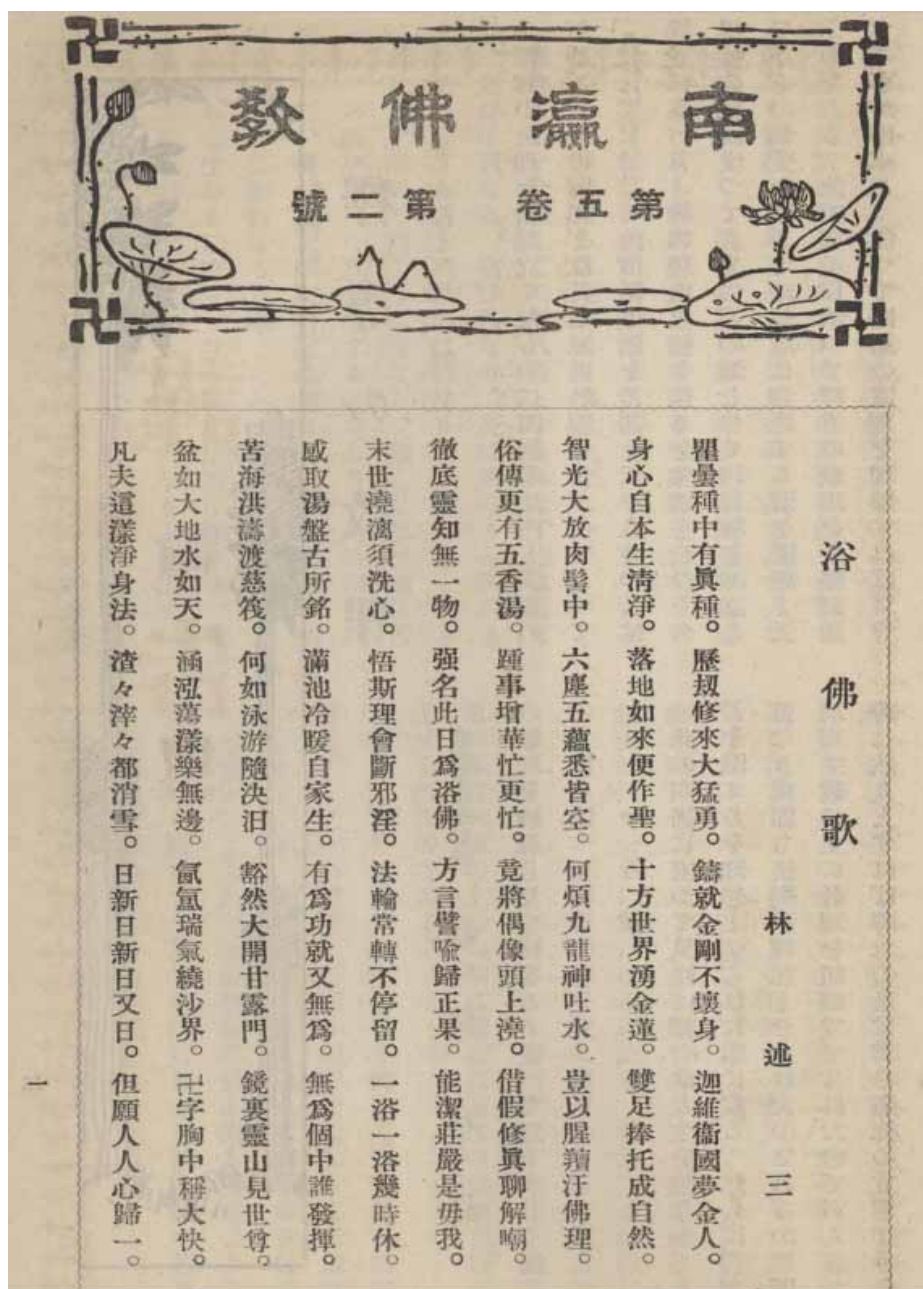 南瀛佛教
第五卷 第二號
浴佛歌
林述三
瞿曇種中有眞種。歷刼修來大猛勇。鑄就金剛不壞身。迦維衞國夢金人。
身心自本生淸淨。落地如來便作聖。十方世界湧金蓮。雙足捧托成自然。
智光大放肉髻中。六塵五蘊悉皆空。何煩九龍神吐水。豈以腥羶汙佛理。
俗傳更有五香湯。踵事增華忙更忙。竟將偶像頭上澆。借假修眞聊解嘲。
徹底靈知無一物。强名此日爲浴佛。方言譬喩歸正果。能潔莊嚴是毋我。
末世澆漓須洗心。悟斯理會斷邪淫。法輪常轉不停留。一浴一浴幾時休。
感取湯盤古所銘。滿池冷暖自家生。有爲功就又無爲。無爲個中誰發揮。
苦海洪濤渡慈筏。何如泳游隨決汨。豁然大開甘露門。鏡裏靈山見世尊。
盆如大地水如天。涵泓蕩漾樂無邊。氤氳瑞氣繞沙界。卍字胸中稱大快。
凡夫這漾淨身法。渣々滓々都消雪。日新日新日又日。但願人人心歸一。
一